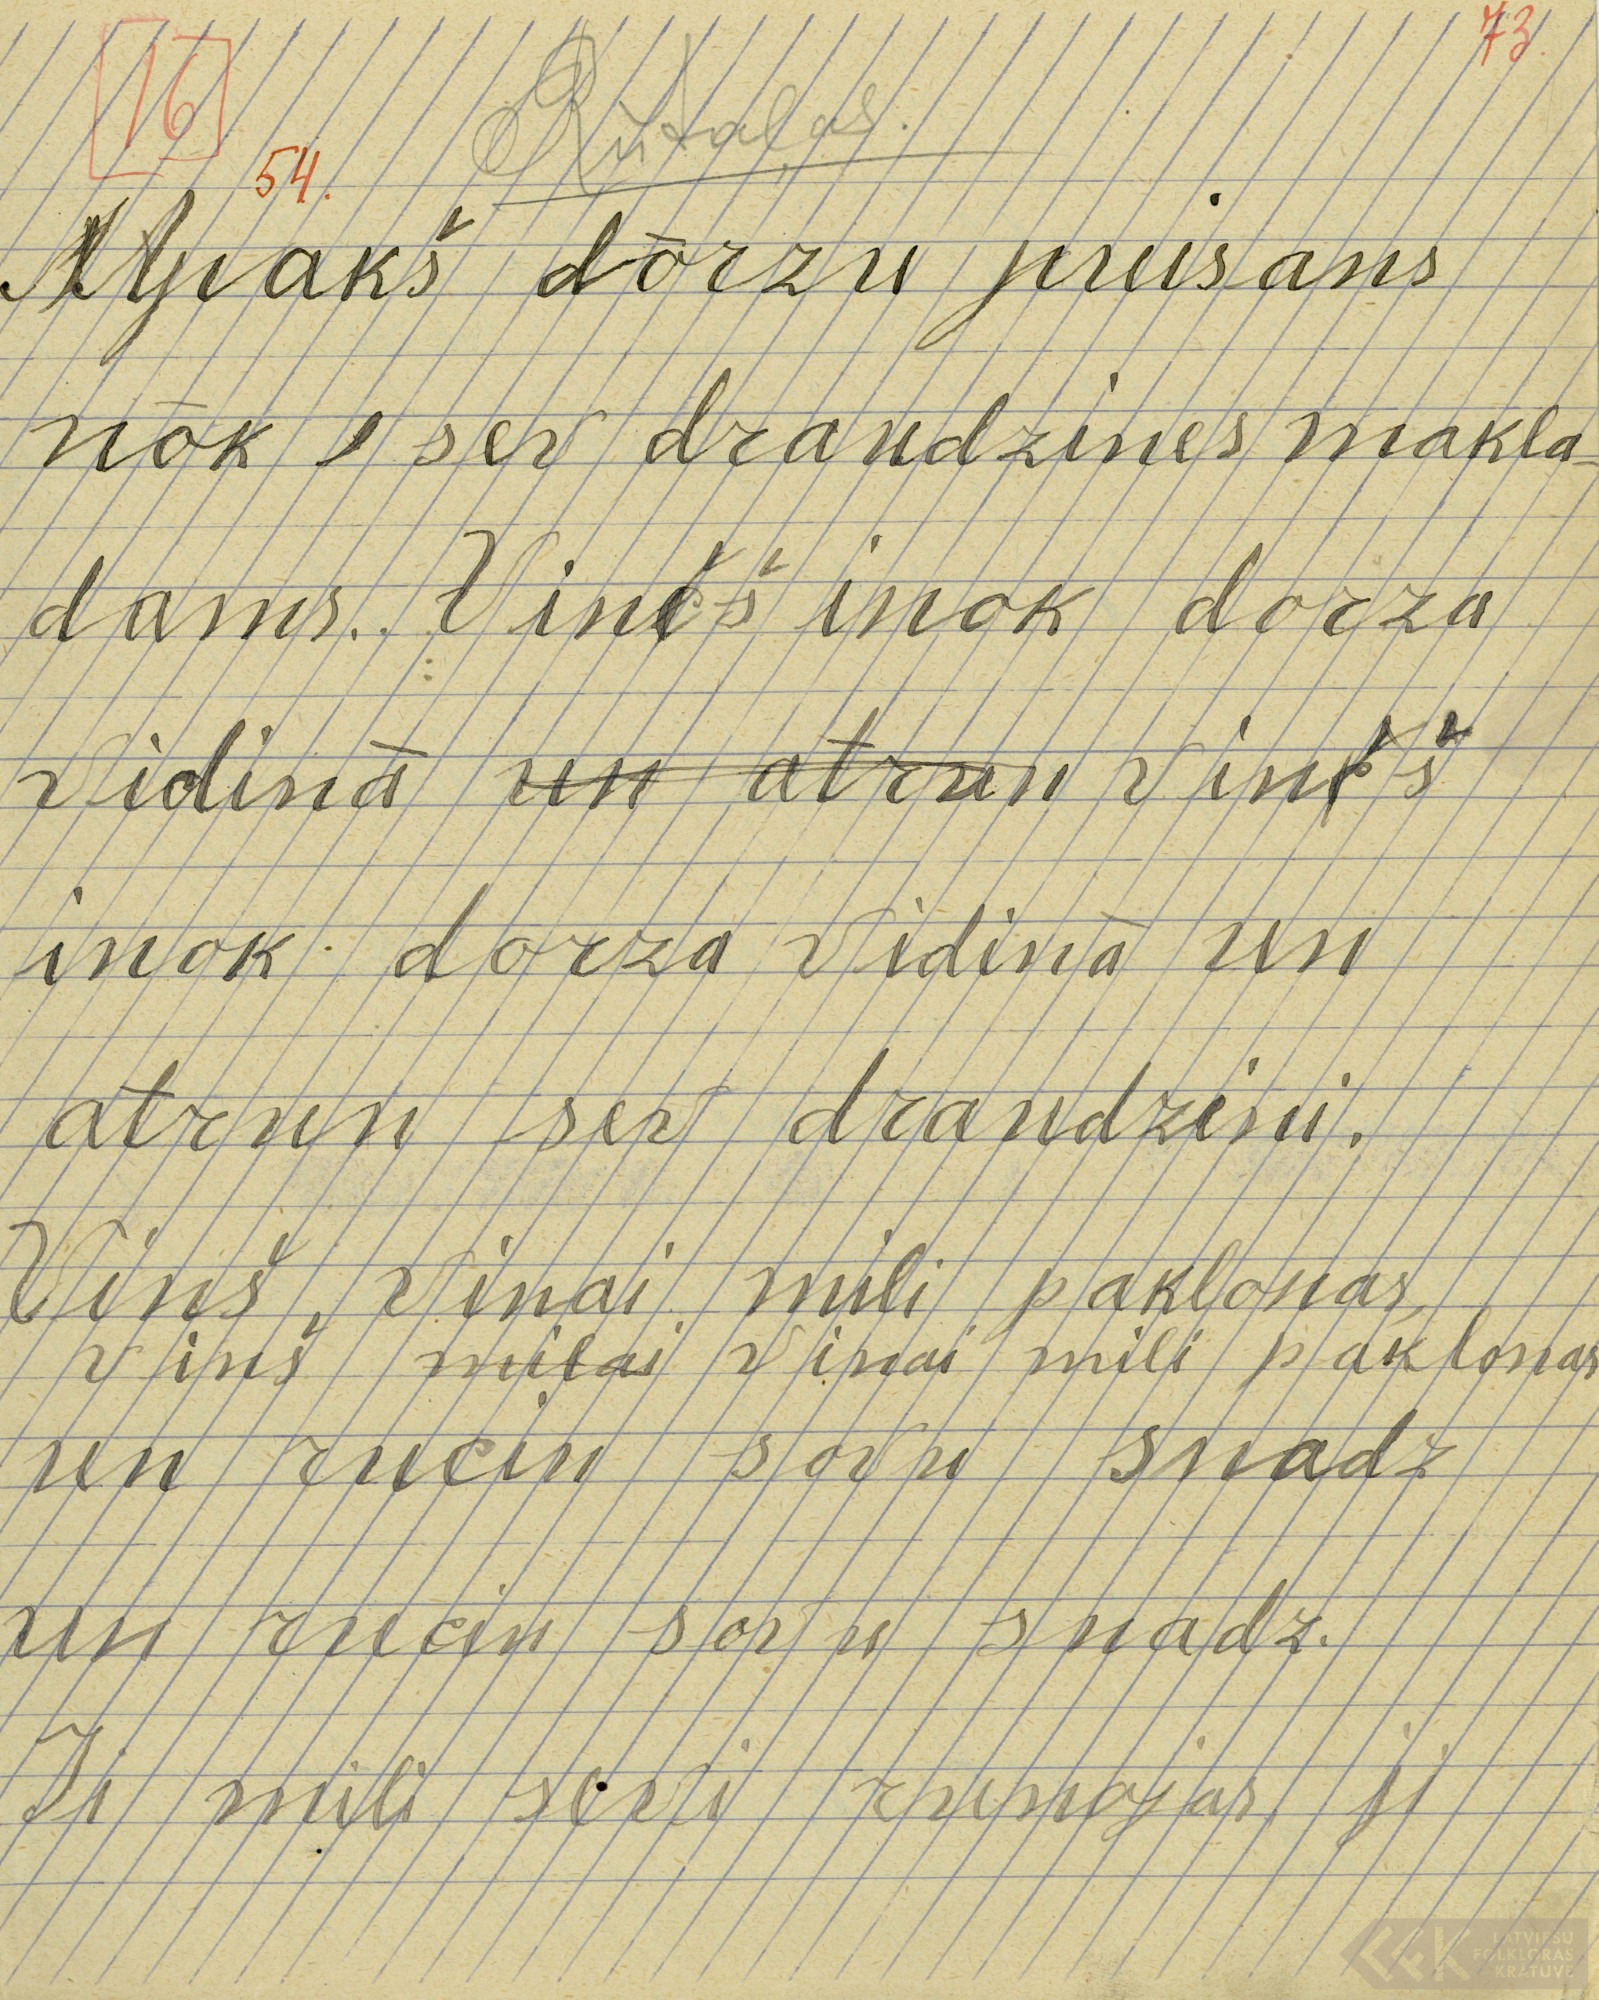 16
73.
Rūtaļas.
54.
Apakš dōrzu puisans
nōk, sev draudzines makla-
dams. Vinš inok dorza
vidinā un atrun vinš
inok dorza vidinā un
atrun sev draudzini.
Vinš, vinai mili paklonas,
vinš milai vinai mili paklonas
un rucin sovu snadz
un rucin sovu snadz.
Ji mili sevi runojas, ji
LATVIEŠU
FOLKLORAS
KRĀTUVE